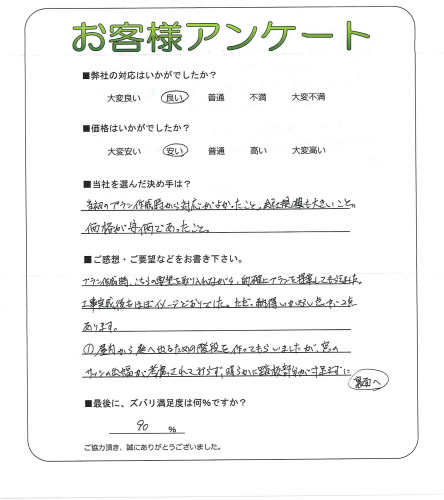 お客様アンケート
■弊社の対応はいかがでしたか？
大変良い 良い 普通 不満 大変不満
■価格はいかがでしたか？
大変安い 安い 普通 高い 大変高い
■当社を選んだ決め手は？
当初のプラン作成時から対応がよかったこと、会社規模も大きいこと。
価格が安価であったこと。
■ご感想・ご要望などをお書き下さい。
プラン作成時、こちらの要望を取り入れながら、的確にプランを提案してもらえました。
工事完成後もほぼイメージどおりでした。ただ、納得しかねる点が2点
あります。
①屋内から庭へ出るための階段を作ってもらいましたが、窓の
サッシの出幅が考慮されておらず、明らかに踏板部分が寸足らずに
裏面へ
■最後に、ズバリ満足度は何％ですか？
90 ％
ご協力頂き、誠にありがとうございました。